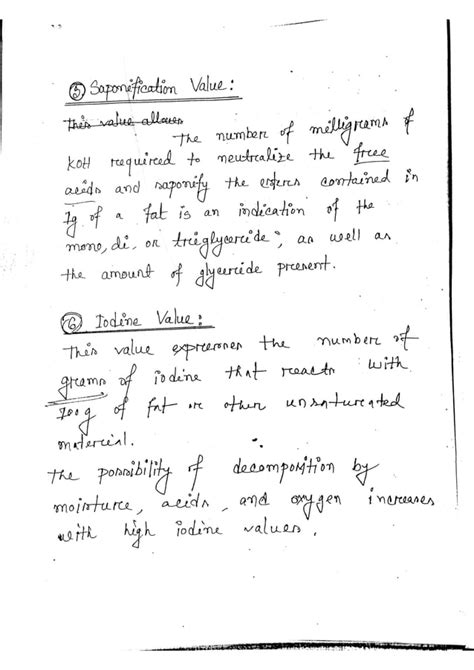 ⑤ Saponification Value:
This value allows
The number of milligrams of
KOH required to neutralize the free
acids and saponify the esters contained in
1g of a fat is an indication of the
mono, di, or triglyceride, as well as
the amount of glyceride present.
⑥ Iodine Value:
This value expresses the number of
grams of iodine that reacts with
100g of fat or other unsaturated
material.
The possibility of decomposition by
moisture, acids, and oxygen increases
with high iodine values.